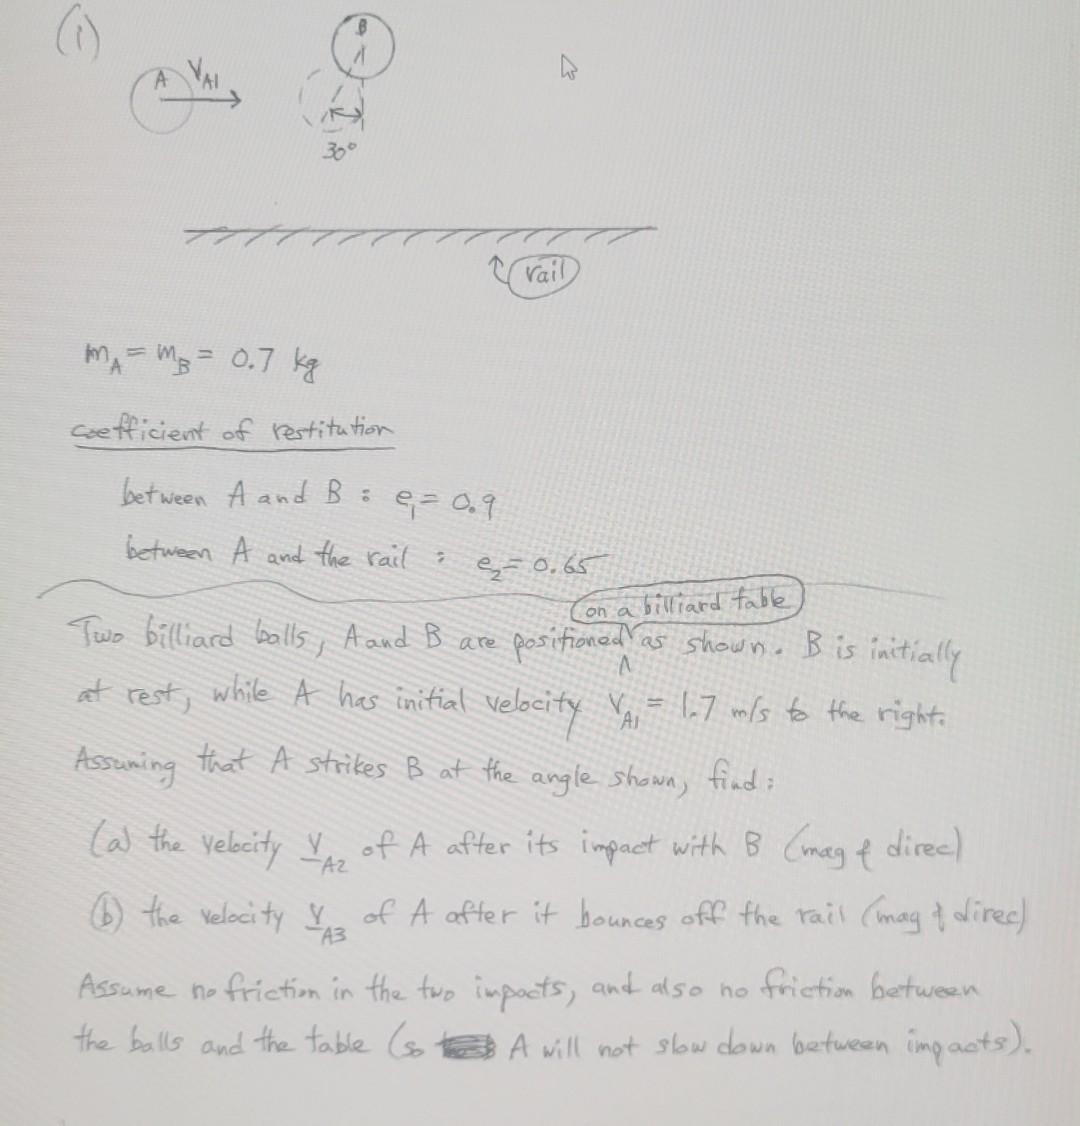 (1)
B
A V_A1
30°
rail
m_A = m_B = 0.7 kg
coefficient of restitution
between A and B : e₁ = 0.9
between A and the rail : e₂ = 0.65
on a billiard table
Two billiard balls, A and B are positioned as shown. B is initially
at rest, while A has initial velocity V_A1 = 1.7 m/s to the right.
Assuming that A strikes B at the angle shown, find :
(a) the velocity V_A2 of A after its impact with B (mag & direc)
(b) the velocity V_A3 of A after it bounces off the rail (mag & direc)
Assume no friction in the two impacts, and also no friction between
the balls and the table (so A will not slow down between impacts).